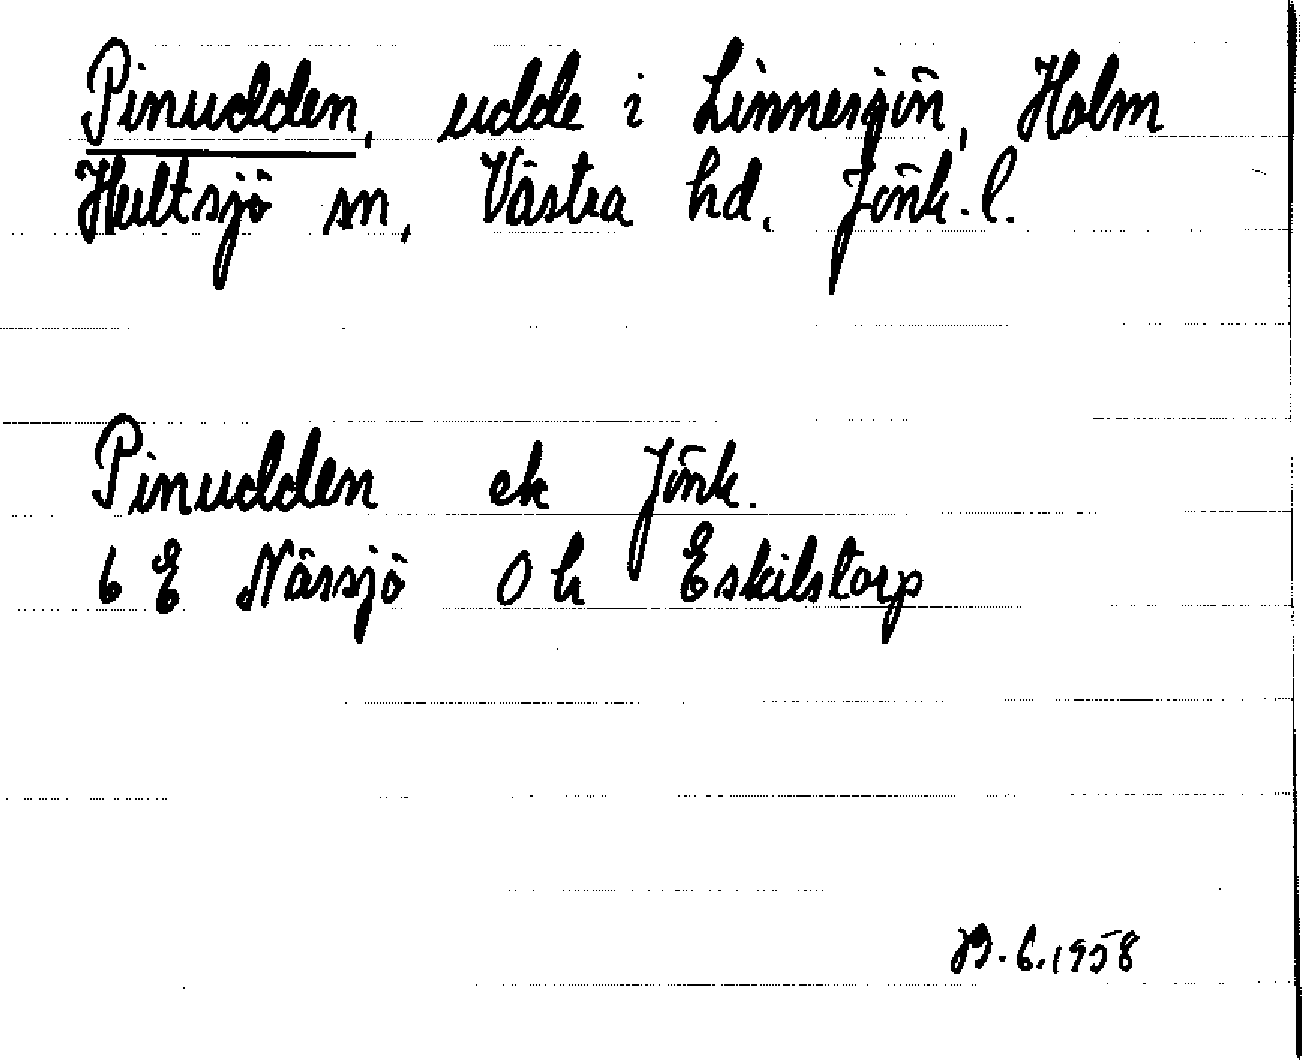 Pinudden, udde i Linnesjön, Holm
Hultsjö sn, Västra hd, Jönk. l.
Pinudden ek Jönk.
6 E Nässjö 0 h Eskilstorp
6.1958